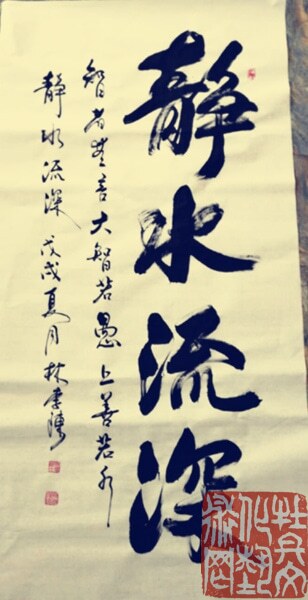 静水流深
智者无言大智若愚上善若水
静水流深 戊戌夏月林